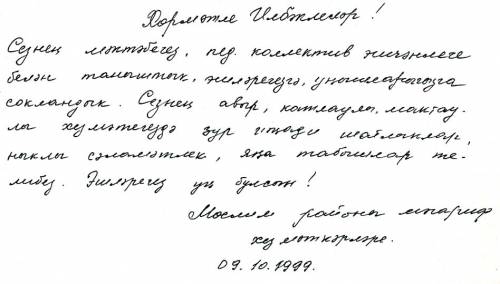 Хөрмәтле Илбәкләләр!
Сезнең мәктәбегез, пед. коллектив эшчәнлеге
белән таныштык, эшләрегезгә, уңышларыгызга
сокландык. Сезнең авыр, катлаулы, мактау-
лы хезмәтегездә зур иҗади шатлыклар,
ныклы сәламәтлек, яңа табышлар те-
либез. Эшләрегез уң булсын!
Мөслим районы мәгариф
хезмәткәрләре.
09.10.1999.